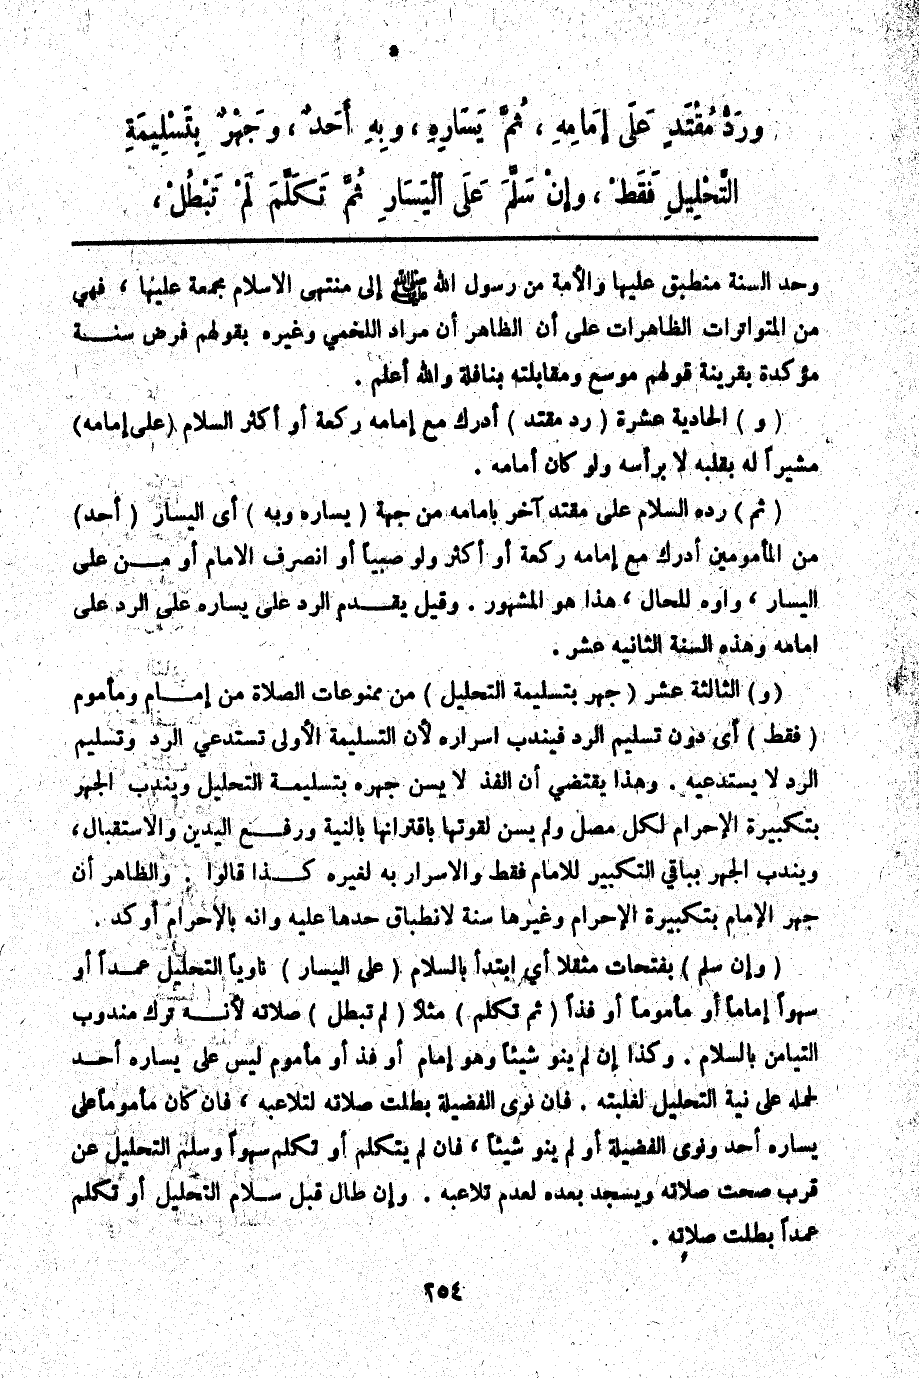 ورَدُّ مُقْتَدٍ عَلَى إِمَامِهِ ، ثُمَّ يَسَارِهِ ، وبِهِ أَحَدٌ ، وجَهْرٌ بِتَسْلِيمَةِ
التَّحْلِيلِ فَقَطْ ، وإنْ سَلَّمَ عَلَى الْيَسَارِ ثُمَّ تَكَلَّمَ لَمْ تَبْطُلْ ،
وحد السنة منطبق عليها والأمة من رسول الله ﷺ إلى منتهى الاسلام مجمعة عليها ، فهي
من المتواترات الظاهرات على أن الظاهر أن مراد اللخمي وغيره بقولهم فرض سنة
مؤكدة بقرينة قولهم موسع ومقابلته بنافلة والله أعلم .
( و ) الحادية عشرة ( رد مقتد ) أدرك مع إمامه ركعة أو أكثر السلام (على إمامه)
مشيراً له بقلبه لا برأسه ولو كان أمامه .
( ثم ) رده السلام على مقتد آخر بامامه من جهة ( يساره وبه ) أى اليسار ( أحد)
من المأمومين أدرك مع إمامه ركعة أو أكثر ولو صبياً أو انصرف الامام أو من على
اليسار ، واوه للحال ، هذا هو المشهور . وقيل يقدم الرد على يساره على الرد على
امامه وهذه السنة الثانيه عشر .
(و) الثالثة عشر ( جهر بتسليمة التحليل ) من ممنوعات الصلاة من إمام ومأموم
( فقط ) أى دون تسليم الرد فيندب اسراره لأن التسليمة الأولى تستدعي الرد وتسليم
الرد لا يستدعيه . وهذا يقتضي أن الفذ لا يسن جهره بتسليمة التحليل ويندب الجهر
بتكبيرة الإحرام لكل مصل ولم يسن لقوتها باقترانها بالنية ورفع اليدين والاستقبال،
ويندب الجهر بباقي التكبير للامام فقط والاسرار به لغيره كذا قالوا . والظاهر أن
جهر الإمام بتكبيرة الإحرام وغيرها سنة لانطباق حدها عليه وانه بالإحرام أوكد .
( وإن سلم ) بفتحات مثقلا أي ابتدأ بالسلام ( على اليسار ) ناوياً التحليل عمداً أو
سهواً إماماً أو مأموماً أو فذاً ( ثم تكلم ) مثلاً ( لم تبطل ) صلاته لأنه ترك مندوب
التيامن بالسلام . وكذا إن لم ينو شيئاً وهو إمام أو فذ أو مأموم ليس على يساره أحد
لحمله على نية التحليل لغلبته . فان نوى الفضيلة بطلت صلاته لتلاعبه ، فان كان مأموماً على
يساره أحد ونوى الفضيلة أو لم ينو شيئاً ، فان لم يتكلم أو تكلم سهواً وسلم التحليل عن
قرب صحت صلاته ويسجد بعده لعدم تلاعبه . وإن طال قبل سلام التحليل أو تكلم
عمداً بطلت صلاته .
٢٥٤